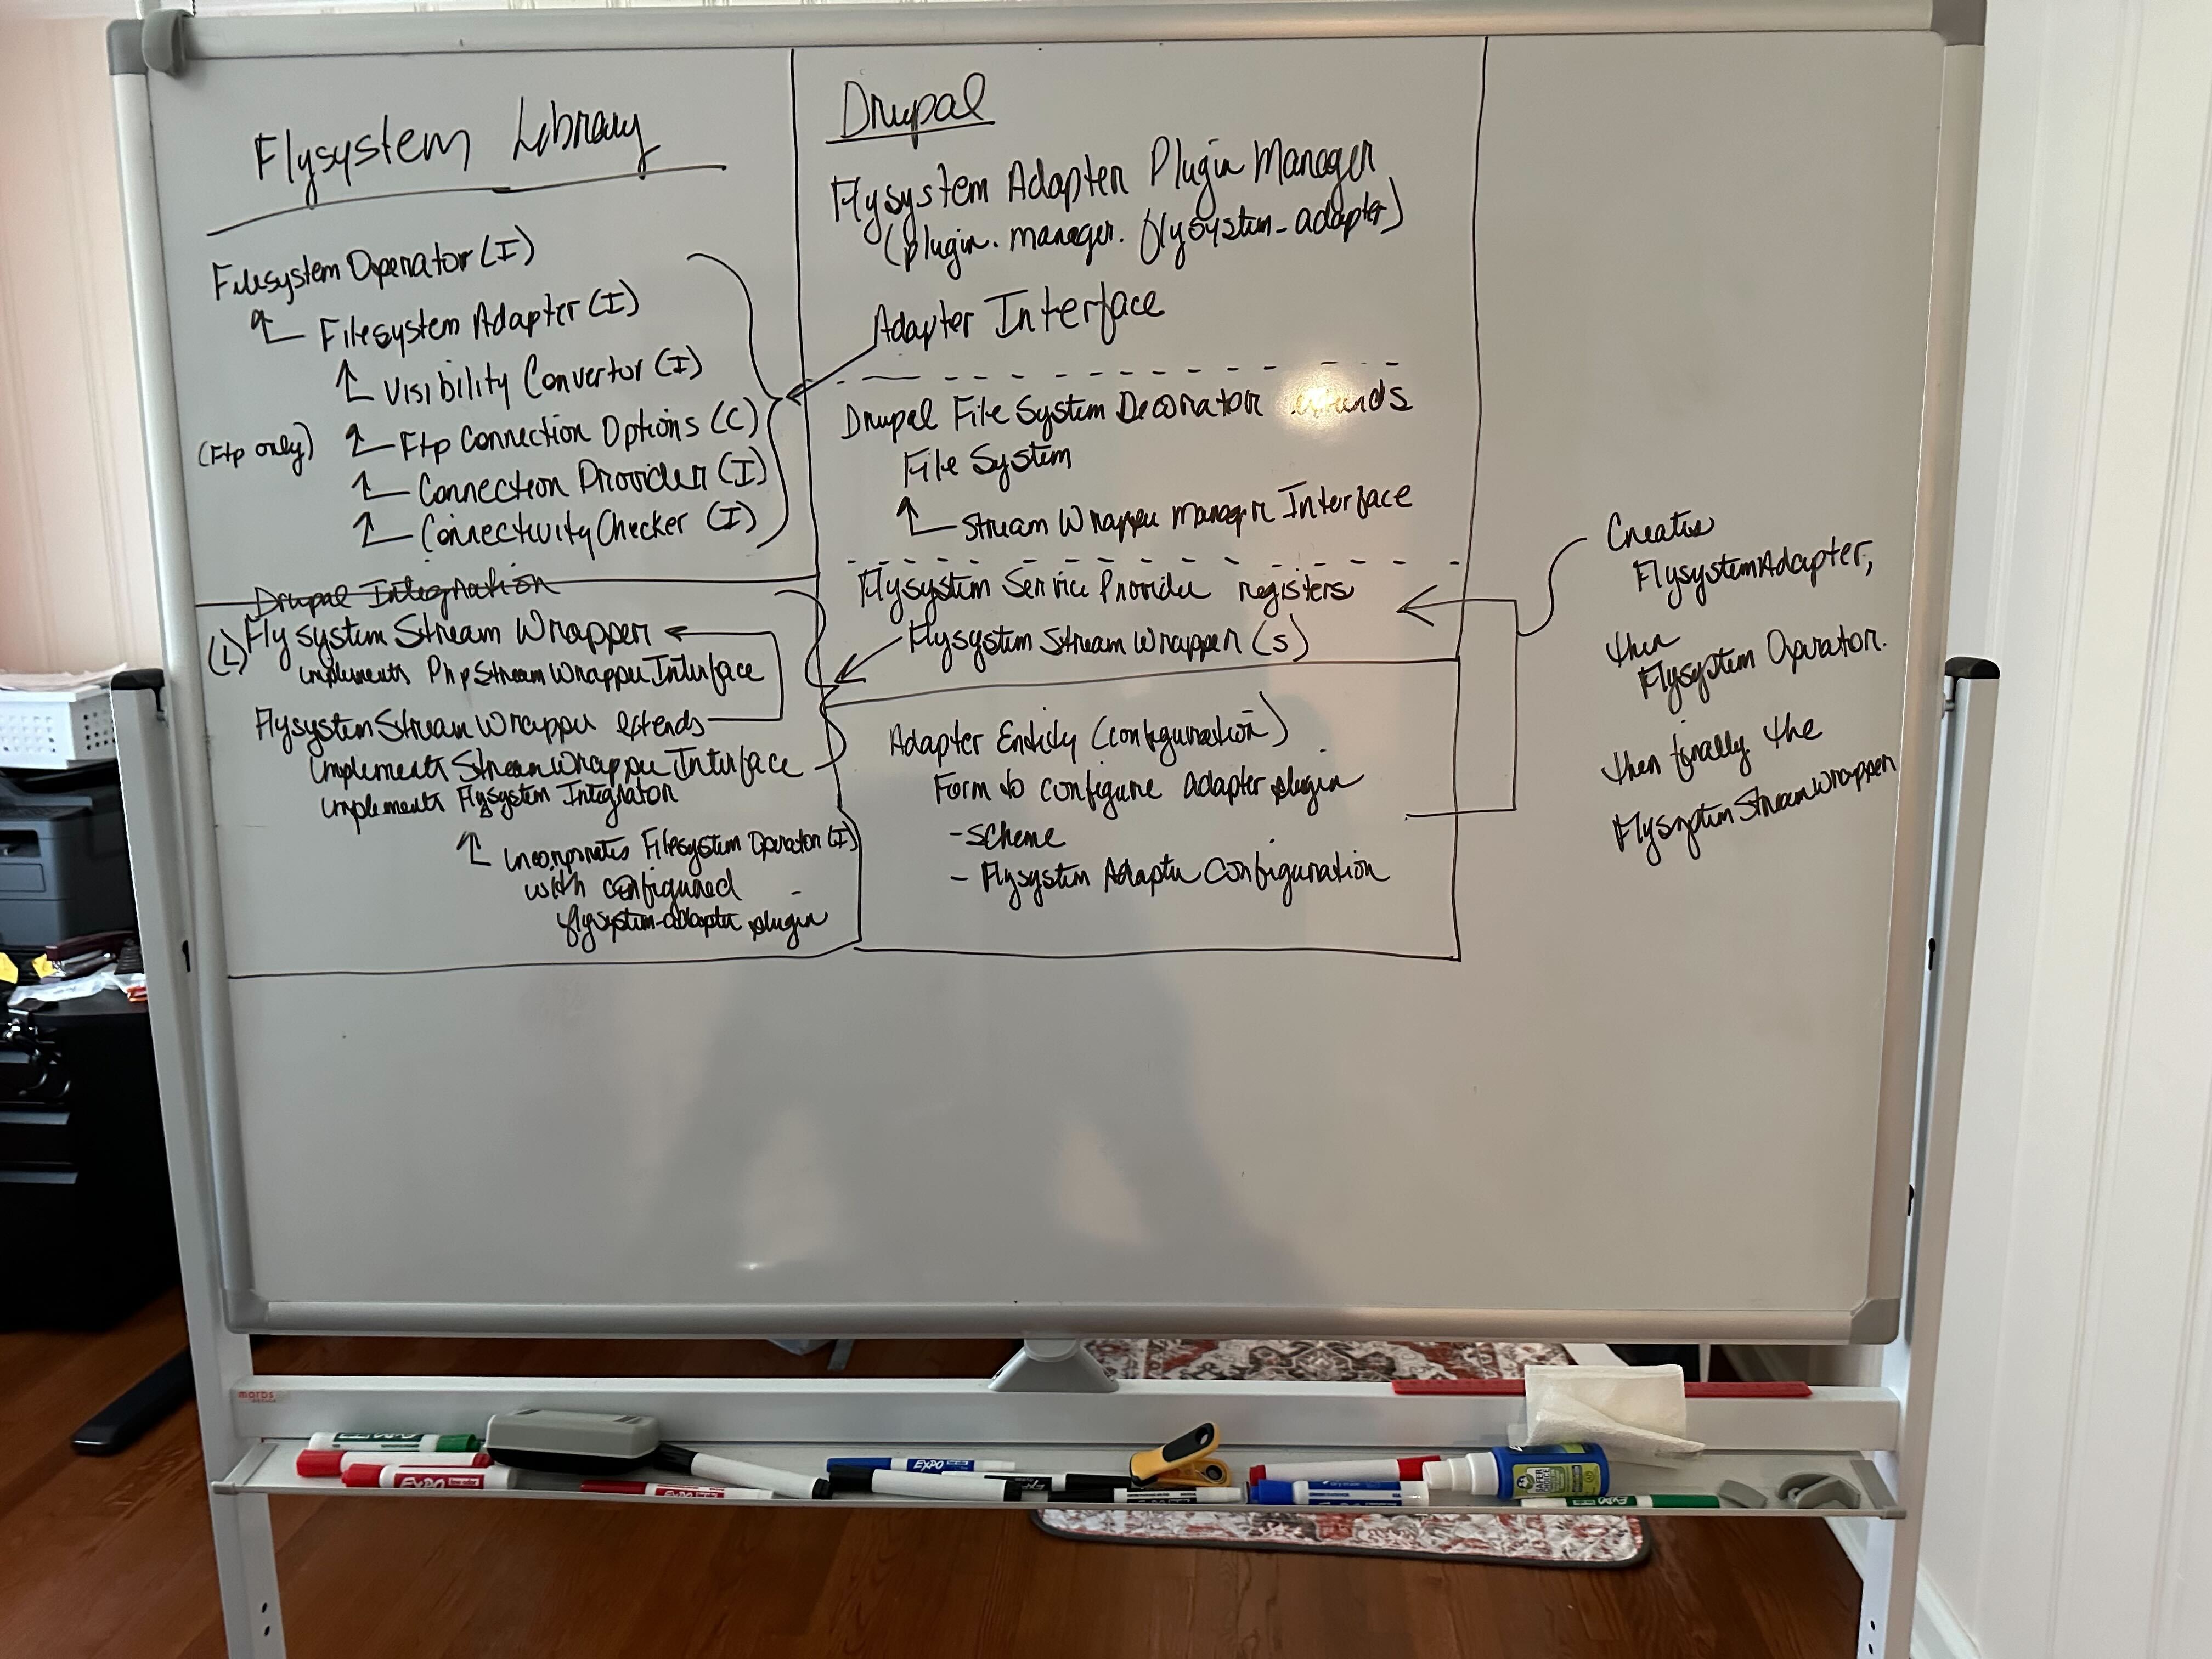 Flysystem Library
Filesystem Operator (I)
Filesystem Adapter (I)
Visibility Convertor (I)
(Ftp only)
Ftp Connection Options (C)
Connection Provider (I)
Connectivity Checker (I)
Drupal Integration
(L) Flysystem Stream Wrapper
implements PhpStreamWrapperInterface
FlysystemStreamWrapper extends
implements StreamWrapperInterface
implements Flysystem Integrator
incorporates Filesystem Operator (I)
with configured
flysystem-adapter plugin
Drupal
Flysystem Adapter Plugin Manager
(plugin.manager.flysystem_adapter)
Adapter Interface
Drupal File System Decorator extends
File System
Stream Wrapper Manager Interface
Flysystem Service Provider registers
Flysystem Stream Wrapper (s)
Adapter Entity (configuration)
Form to configure adapter plugin
- scheme
- Flysystem Adapter Configuration
Creates
FlysystemAdapter,
then
Flysystem Operator.
then finally the
FlysystemStreamWrapper
EXPO
EXPO
EXPO